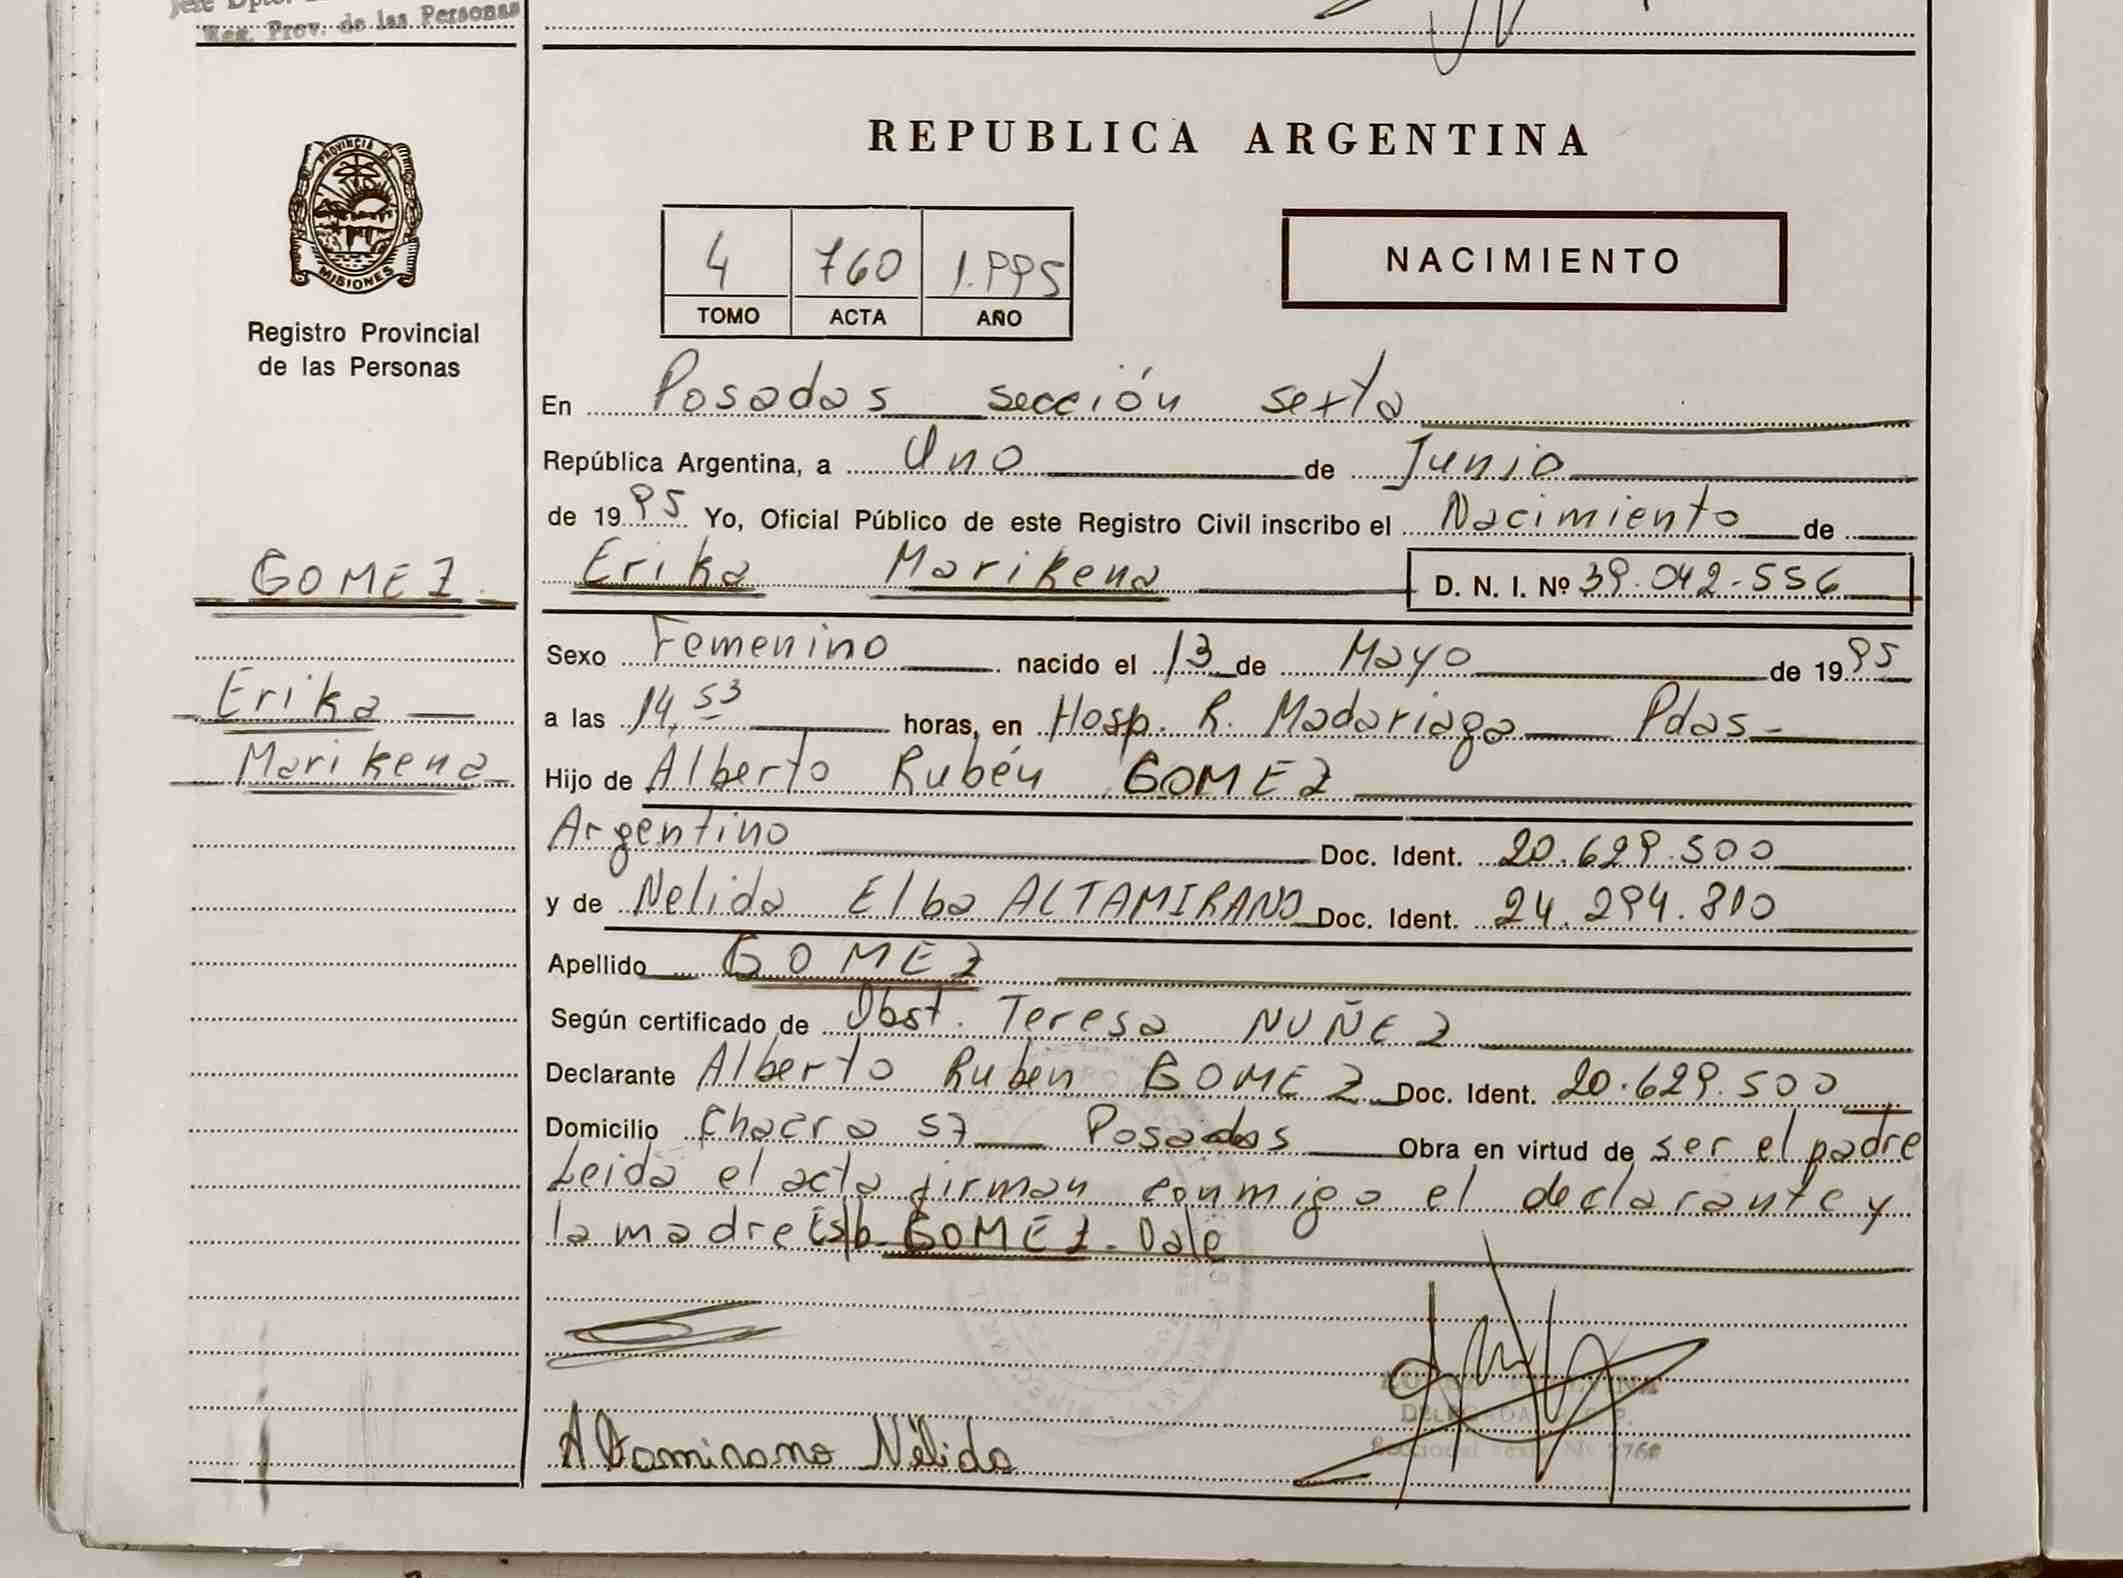 Jefe Dpto.
Reg. Prov. de las Personas
PROVINCIA DE
MISIONES
Registro Provincial
de las Personas
GOMEZ.
Erika
Marikena
REPUBLICA ARGENTINA
4 760 1.995
TOMO ACTA AÑO
NACIMIENTO
En Posadas sección sexta
República Argentina, a Uno de Junio
de 1995 Yo, Oficial Público de este Registro Civil inscribo el Nacimiento de
Erika Marikena D. N. I. Nº 39.042.556
Sexo Femenino nacido el 13 de Mayo de 1995
a las 14,53 horas, en Hosp. R. Madariaga Pdas
Hijo de Alberto Rubén GOMEZ
Argentino Doc. Ident. 20.629.500
y de Nelida Elba ALTAMIRANO Doc. Ident. 24.294.810
Apellido GOMEZ
Según certificado de Obst. Teresa NUÑEZ
Declarante Alberto Ruben GOMEZ Doc. Ident. 20.629.500
Domicilio Chacra 57 Posadas Obra en virtud de ser el padre
Leida el acta firman conmigo el declarante y
la madre E/b. GOMEZ. Vale
Altamirano Nélida